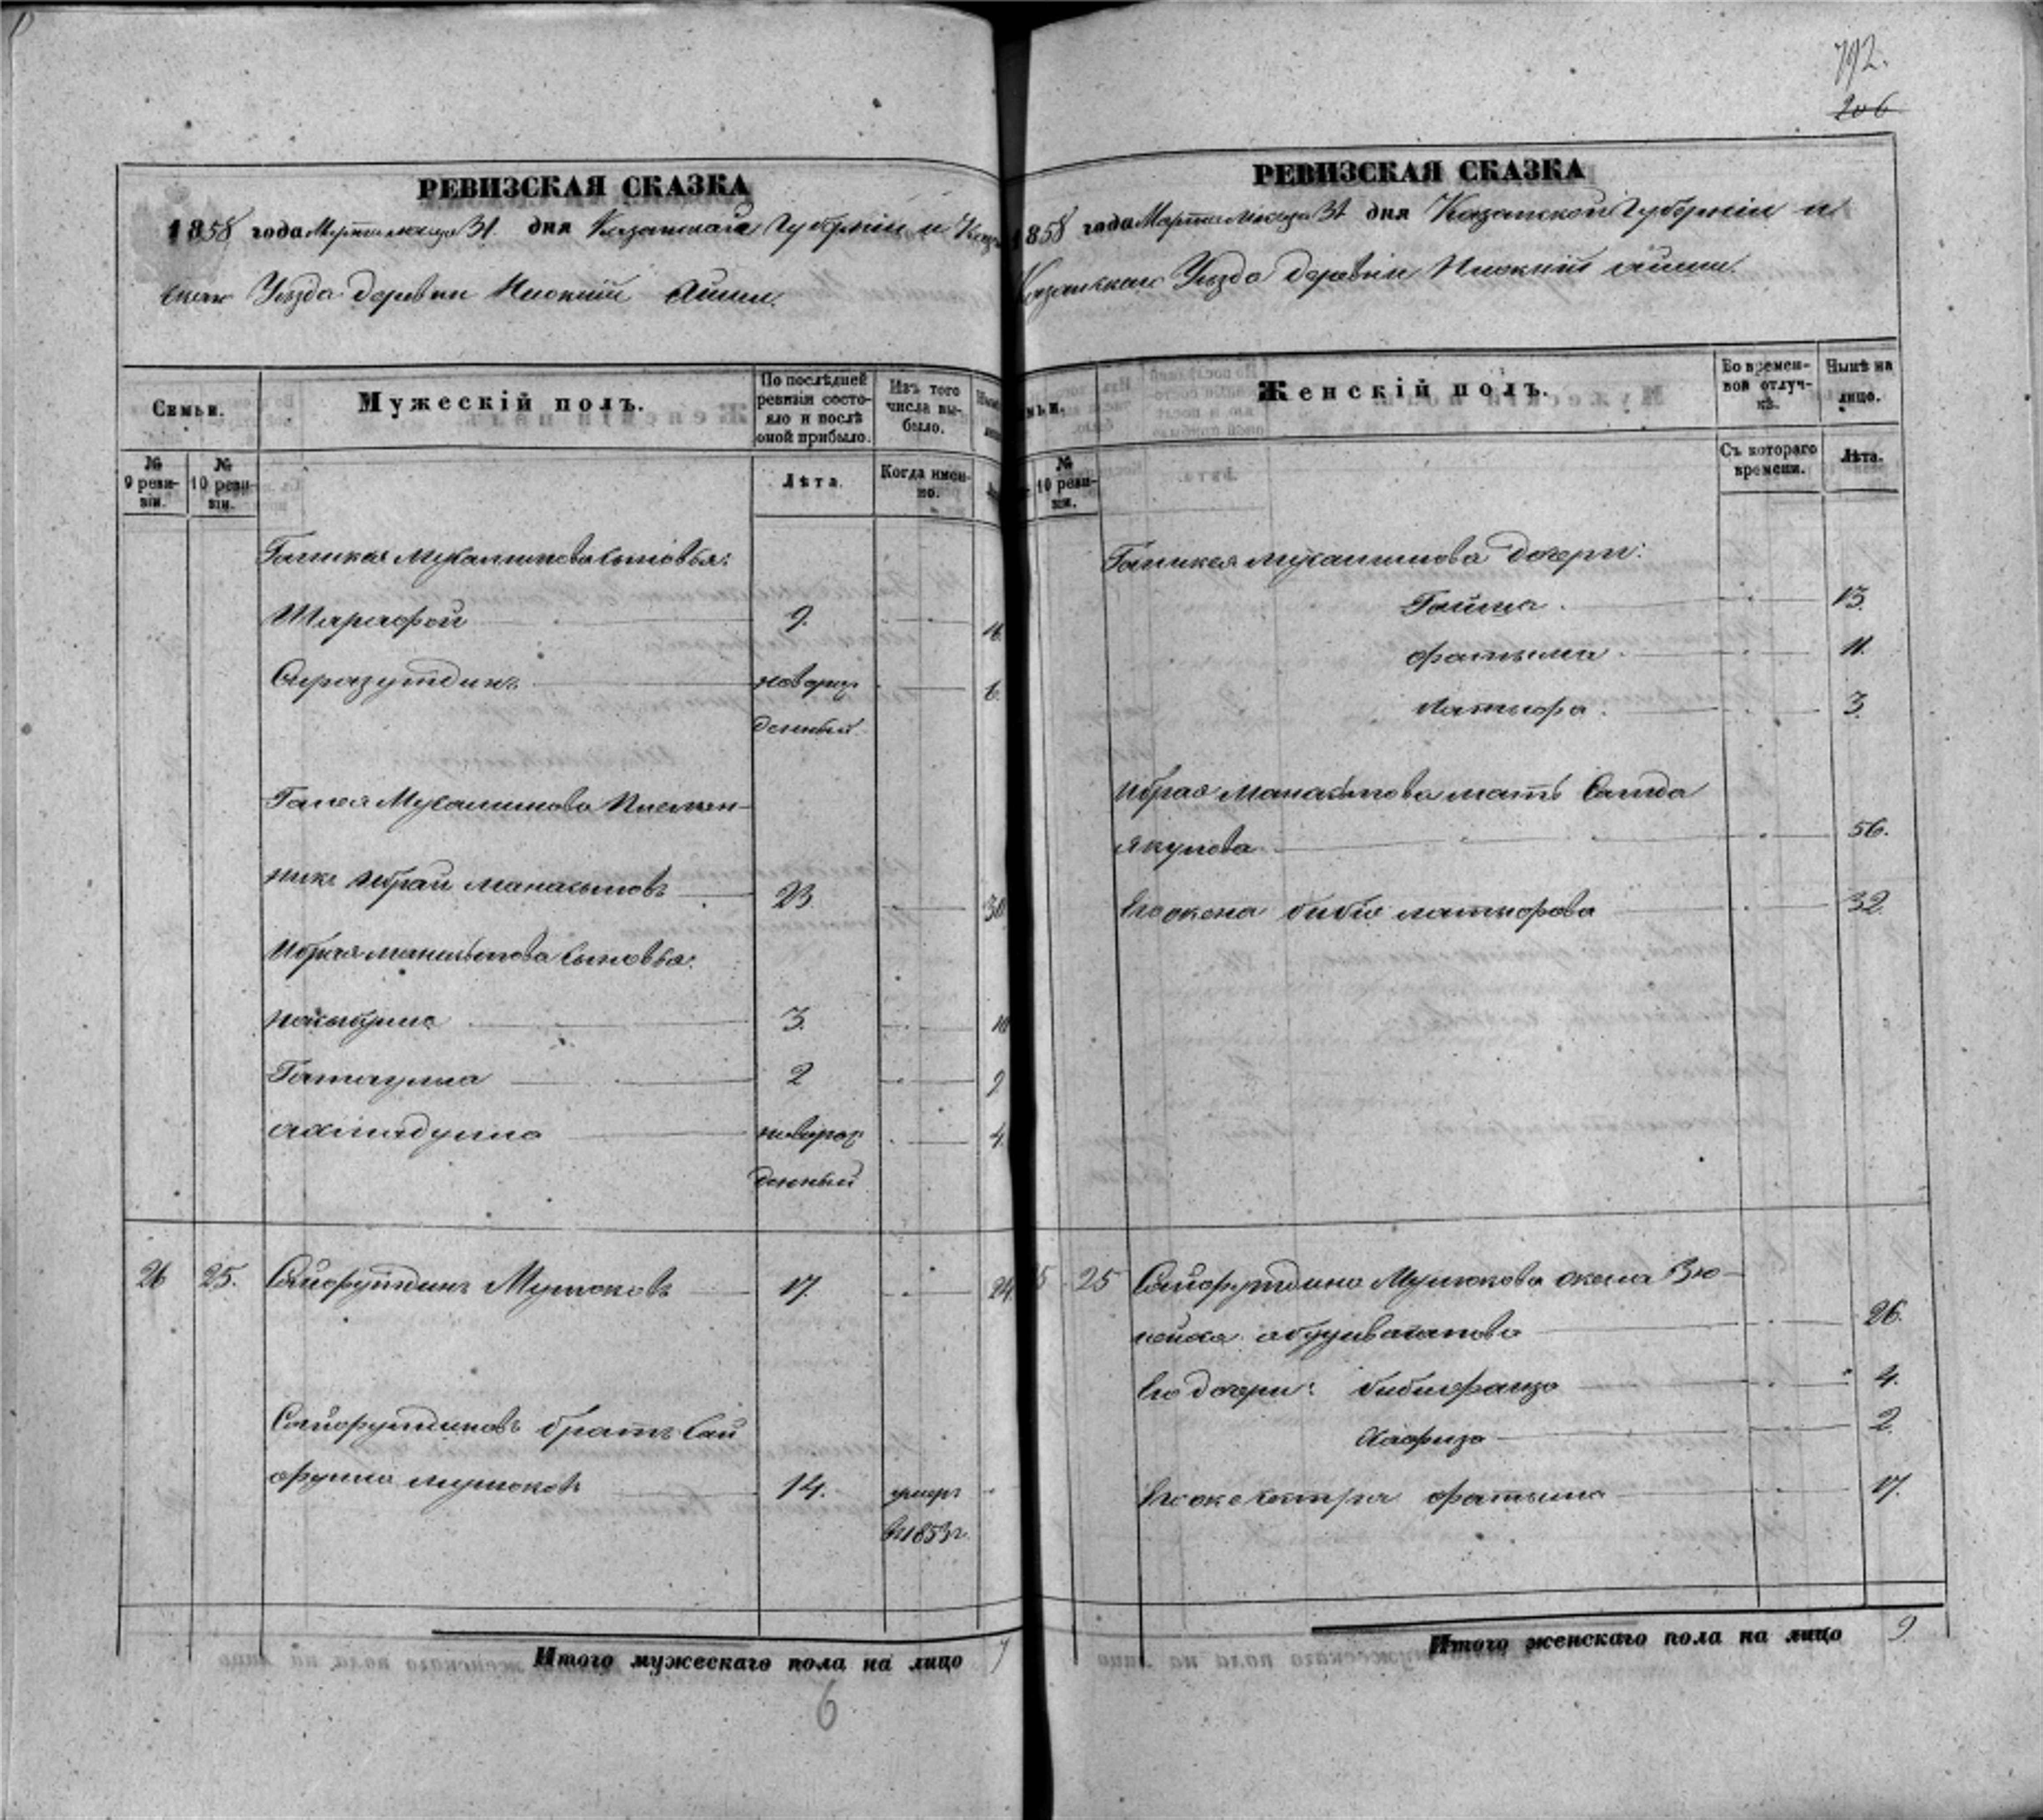 792.
206
РЕВИЗСКАЯ СКАЗКА
1858 года Марта месяца 31 дня Казанской Губернии и Казан
скаго Уезда деревни Нижний Аиши.
Семьи.
Мужескій полъ.
По послѣдней ревизіи состояло и послѣ оной прибыло.
Изъ того числа выбыло.
№ 9 ревизіи.
№ 10 ревизіи.
Лѣта.
Когда именно.
Галикея Мукаминова сыновья:
Шарафей 9. 16.
Сиразутдинъ новорож 6.
денный
Галея Мукаминова племян-
никъ Ибрай Манасыповъ 23. 30
Ибрая Манасыпова сыновья:
3. 10
Гатаулла 2 9
новорож 4.
денный
26 25. Сайфутдинъ Мутюковъ 17. 24.
Сайфутдиновъ братъ Сай
фулла Мутюковъ 14. умеръ
въ 1853 г.
Итого мужескаго пола на лицо 7
6
РЕВИЗСКАЯ СКАЗКА
1858 года Марта месяца 31 дня Казанской Губернии и
Казанскаго Уезда деревни Нижний Аиши.
Женскій полъ.
Во временной отлучкѣ.
Нынѣ на лицо.
№ 10 ревизіи.
Съ котораго времени.
Лѣта.
Галикея Мукаминова дочери:
Гайша 13.
Фатыма 11.
Латыфа 3.
Ибрая Манасыпова мать Саида
Якупова 56.
Его жена Биби Латыфова 32.
25 Сайфутдина Мутюкова жена Зю-
26.
Его дочери: Бибифаиза 4.
Хафиза 2.
Его же сестра Фатыма 17.
Итого женскаго пола на лицо 9